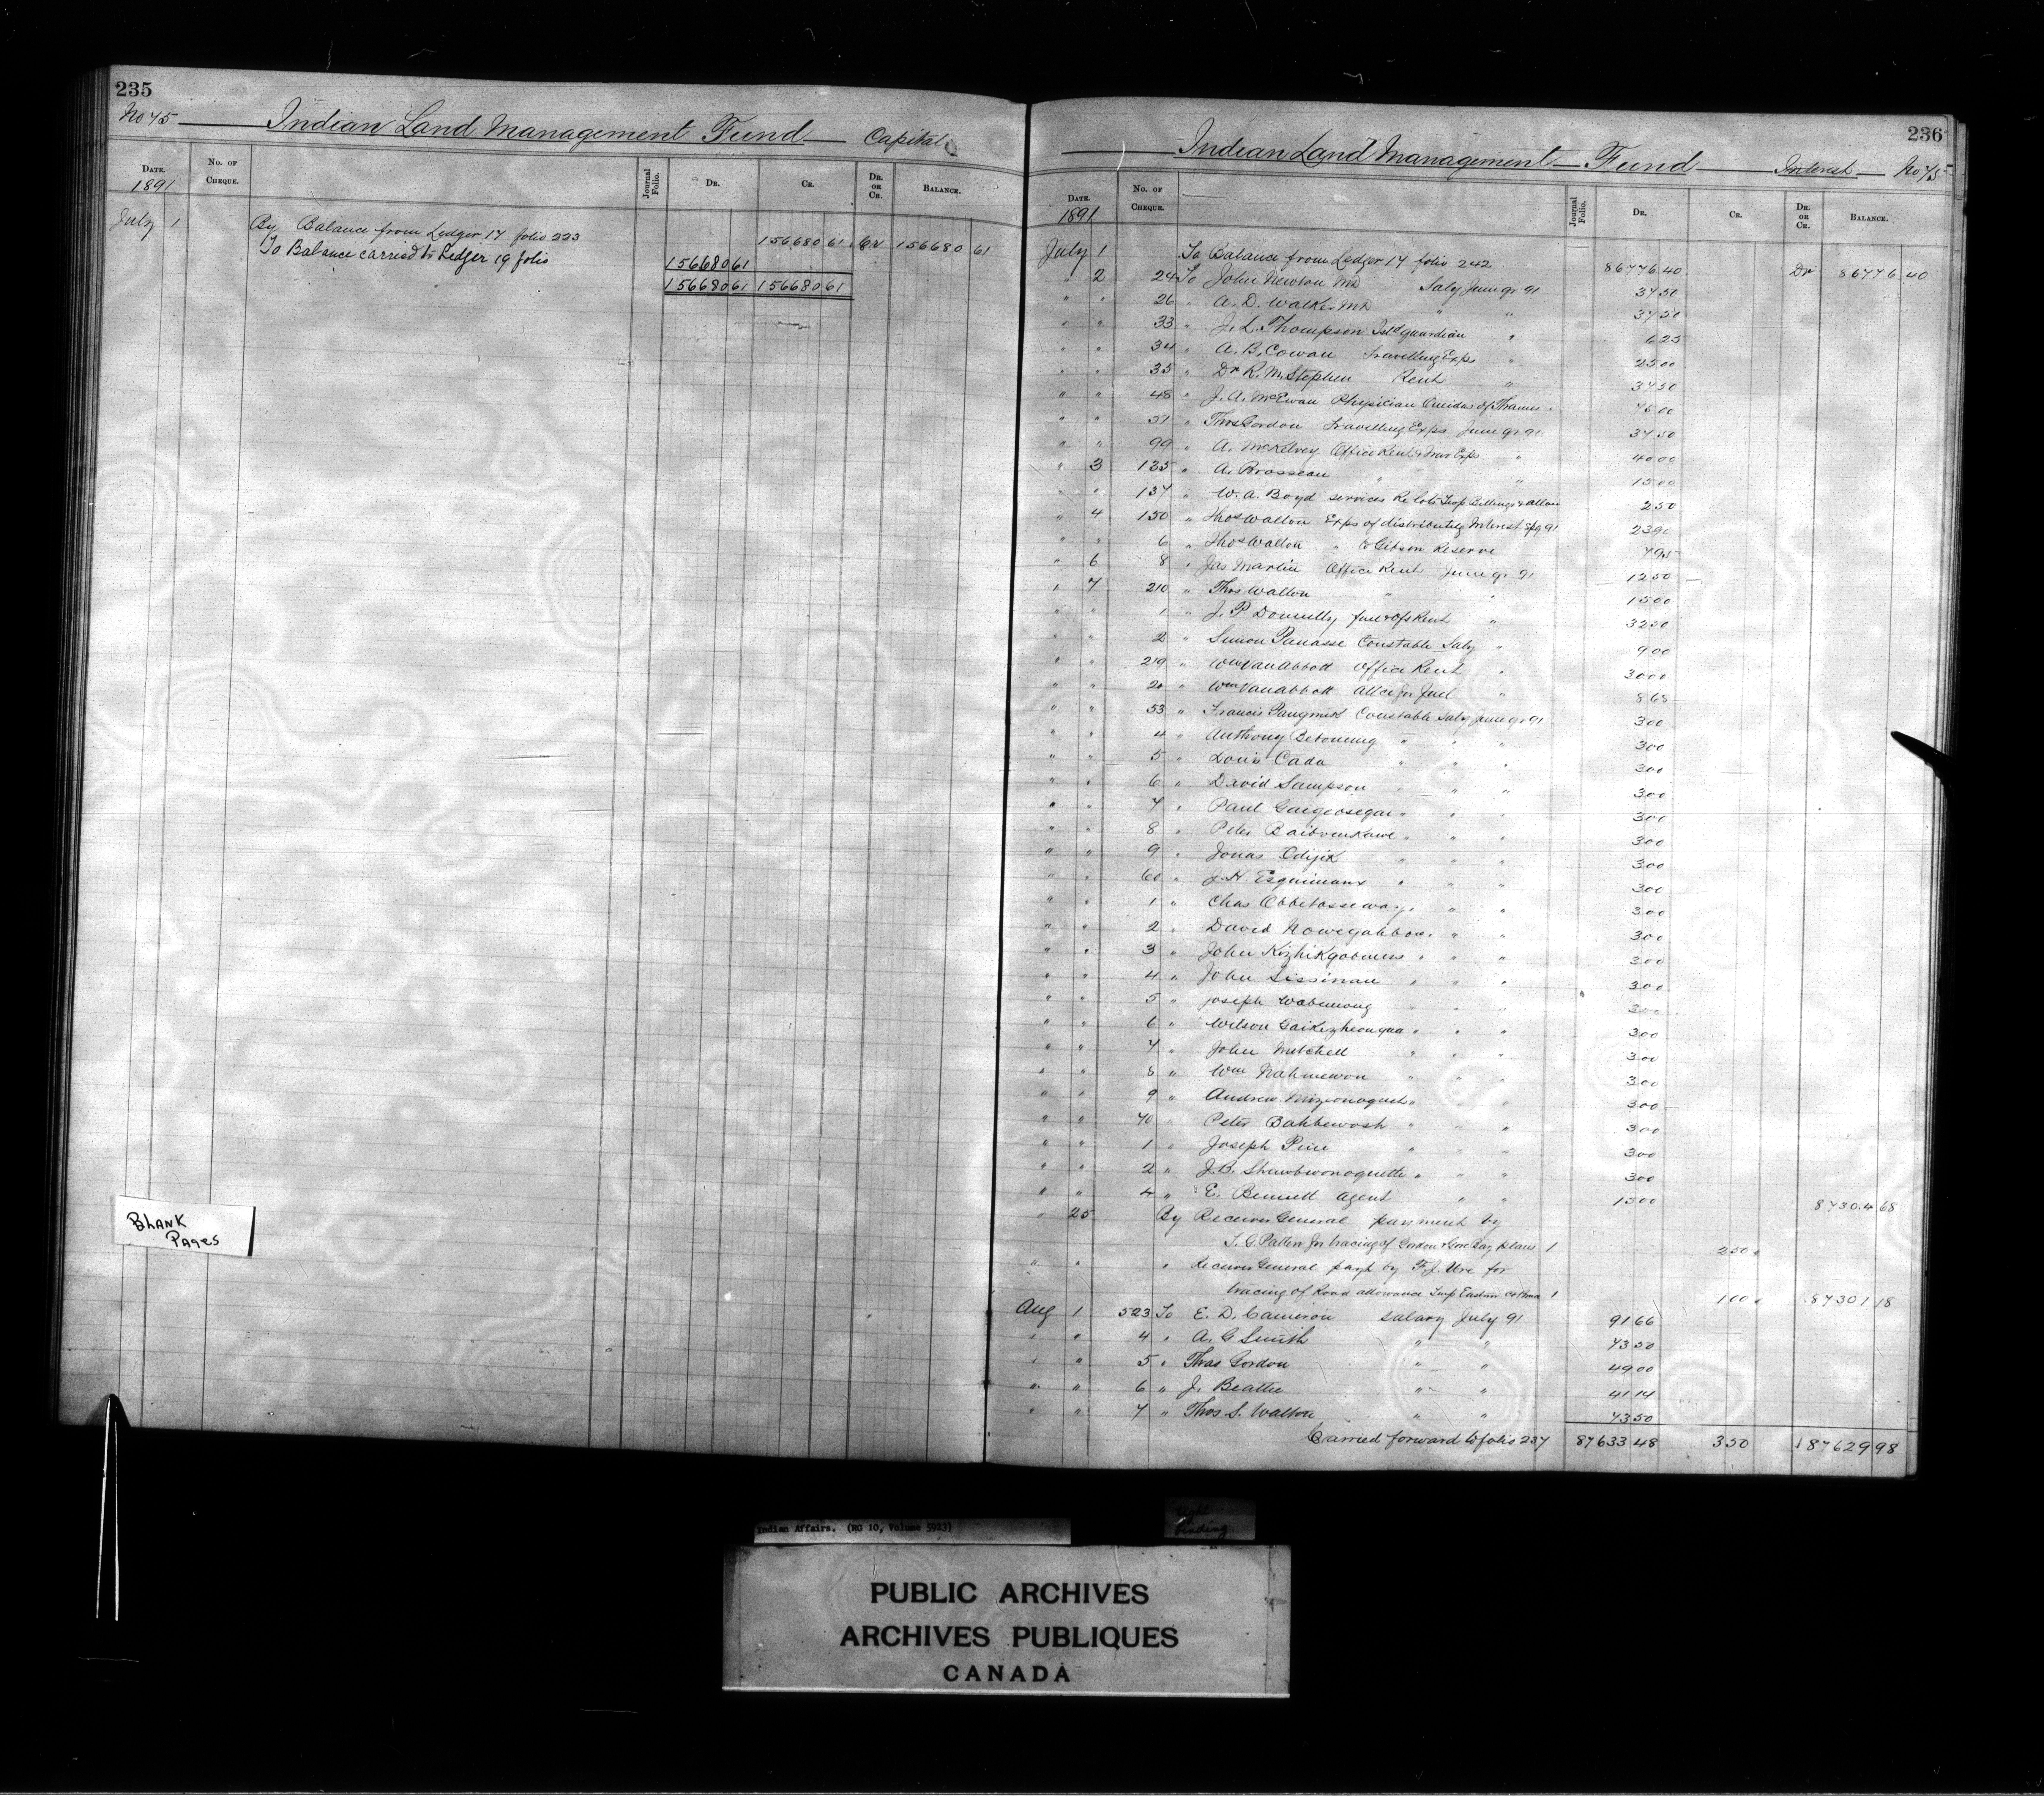 235
No 75 Indian Land Management Fund Capital
DATE. No. OF CHEQUE. Journal Folio. DR. CR. DR. OR CR. BALANCE.
1891
July 1 By Balance from Ledger 17 folio 223 156680 61 Cr 156680 61
To Balance carried to Ledger 19 folio 156680 61
156680 61 156680 61
BLANK PAGES
236
Indian Land Management Fund Interest No 75
DATE. No. OF CHEQUE. Journal Folio. DR. CR. DR. OR CR. BALANCE.
1891
July 1 To Balance from Ledger 17 folio 242 86776 40 Dr 86776 40
" 2 24 To John Newton MD Saly June qr 91 37 50
" " 26 " A. D. Walker MD " " 37 50
" " 33 " J. L. Thompson Isld guardian " 6 25
" " 34 " A. B. Cowan Travelling Exps " 25 00
" " 35 " Dr R. M. Stephen Rent " 37 50
" " 48 " J. A. McEwan Physician Oneidas of Thames " 75 00
" " 51 " Thos Gordon Travelling Exps June qr 91 37 50
" " 99 " A. McKelvey Office Rent & Trav Exps " 40 00
" 3 125 " A. Brosseau " " 15 00
" " 137 " W. A. Boyd services Re lots Twp Billings & Allan 2 50
" 4 150 " Thos Walton Exps of distributing Interest Spg 91 23 90
" " 6 " Thos Walton " to Gibson Reserve 7 95
" 6 8 " Jas Martin Office Rent June qr 91 12 50
" 7 210 " Thos Walton " " 15 00
" " 1 " J. P. Donnelly fuel & Ofs Rent " 32 50
" " 2 " Simon Panasse Constable Saly " 9 00
" " 219 " Wm Van Abbott Office Rent " 30 00
" " 20 " Wm Van Abbott Allce for fuel " 8 68
" " 53 " Francis Constable Saly June qr 91 3 00
" " 4 " Anthony " " " 3 00
" " 5 " Louis Cada " " " 3 00
" " 6 " David Sampson " " " 3 00
" " 7 " Paul " " " 3 00
" " 8 " Peter " " " 3 00
" " 9 " Jonas Odjick " " " 3 00
" " 60 " J. H. Esquimaux " " " 3 00
" " 1 " Chas Obbetosseway " " " 3 00
" " 2 " David Nowegahbow " " " 3 00
" " 3 " John " " " 3 00
" " 4 " John Sissinan " " " 3 00
" " 5 " Joseph Wabumoug " " " 3 00
" " 6 " Wilson " " " 3 00
" " 7 " John Mitchell " " " 3 00
" " 8 " Wm Nahmewon " " " 3 00
" " 9 " Andrew " " " 3 00
" " 70 " Peter Bahbewosh " " " 3 00
" " 1 " Joseph Pine " " " 3 00
" " 2 " J. B. Shawbwonoquette " " " 3 00
" " 4 " E. Bennett agent " " 15 00 87304 68
" 25 By Receiver General payment by
T. G. Patten for tracing of Gordon & Gore Bay plans 1 2 50
" " " Receiver General payt by F. J. Ure for
tracing of Road allowance Twp 1 1 00 87301 18
Aug 1 523 To E. D. Cameron salary July 91 91 66
" " 4 " A. G Smith " " 73 50
" " 5 " Thos Gordon " " 49 00
" " 6 " J. Beattie " " 41 14
" " 7 " Thos S. Walton " " 73 50
Carried forward to folio 237 87633 48 3 50 87629 98
Indian Affairs. (RG 10, Volume 5923)
Tight Binding
PUBLIC ARCHIVES
ARCHIVES PUBLIQUES
CANADA